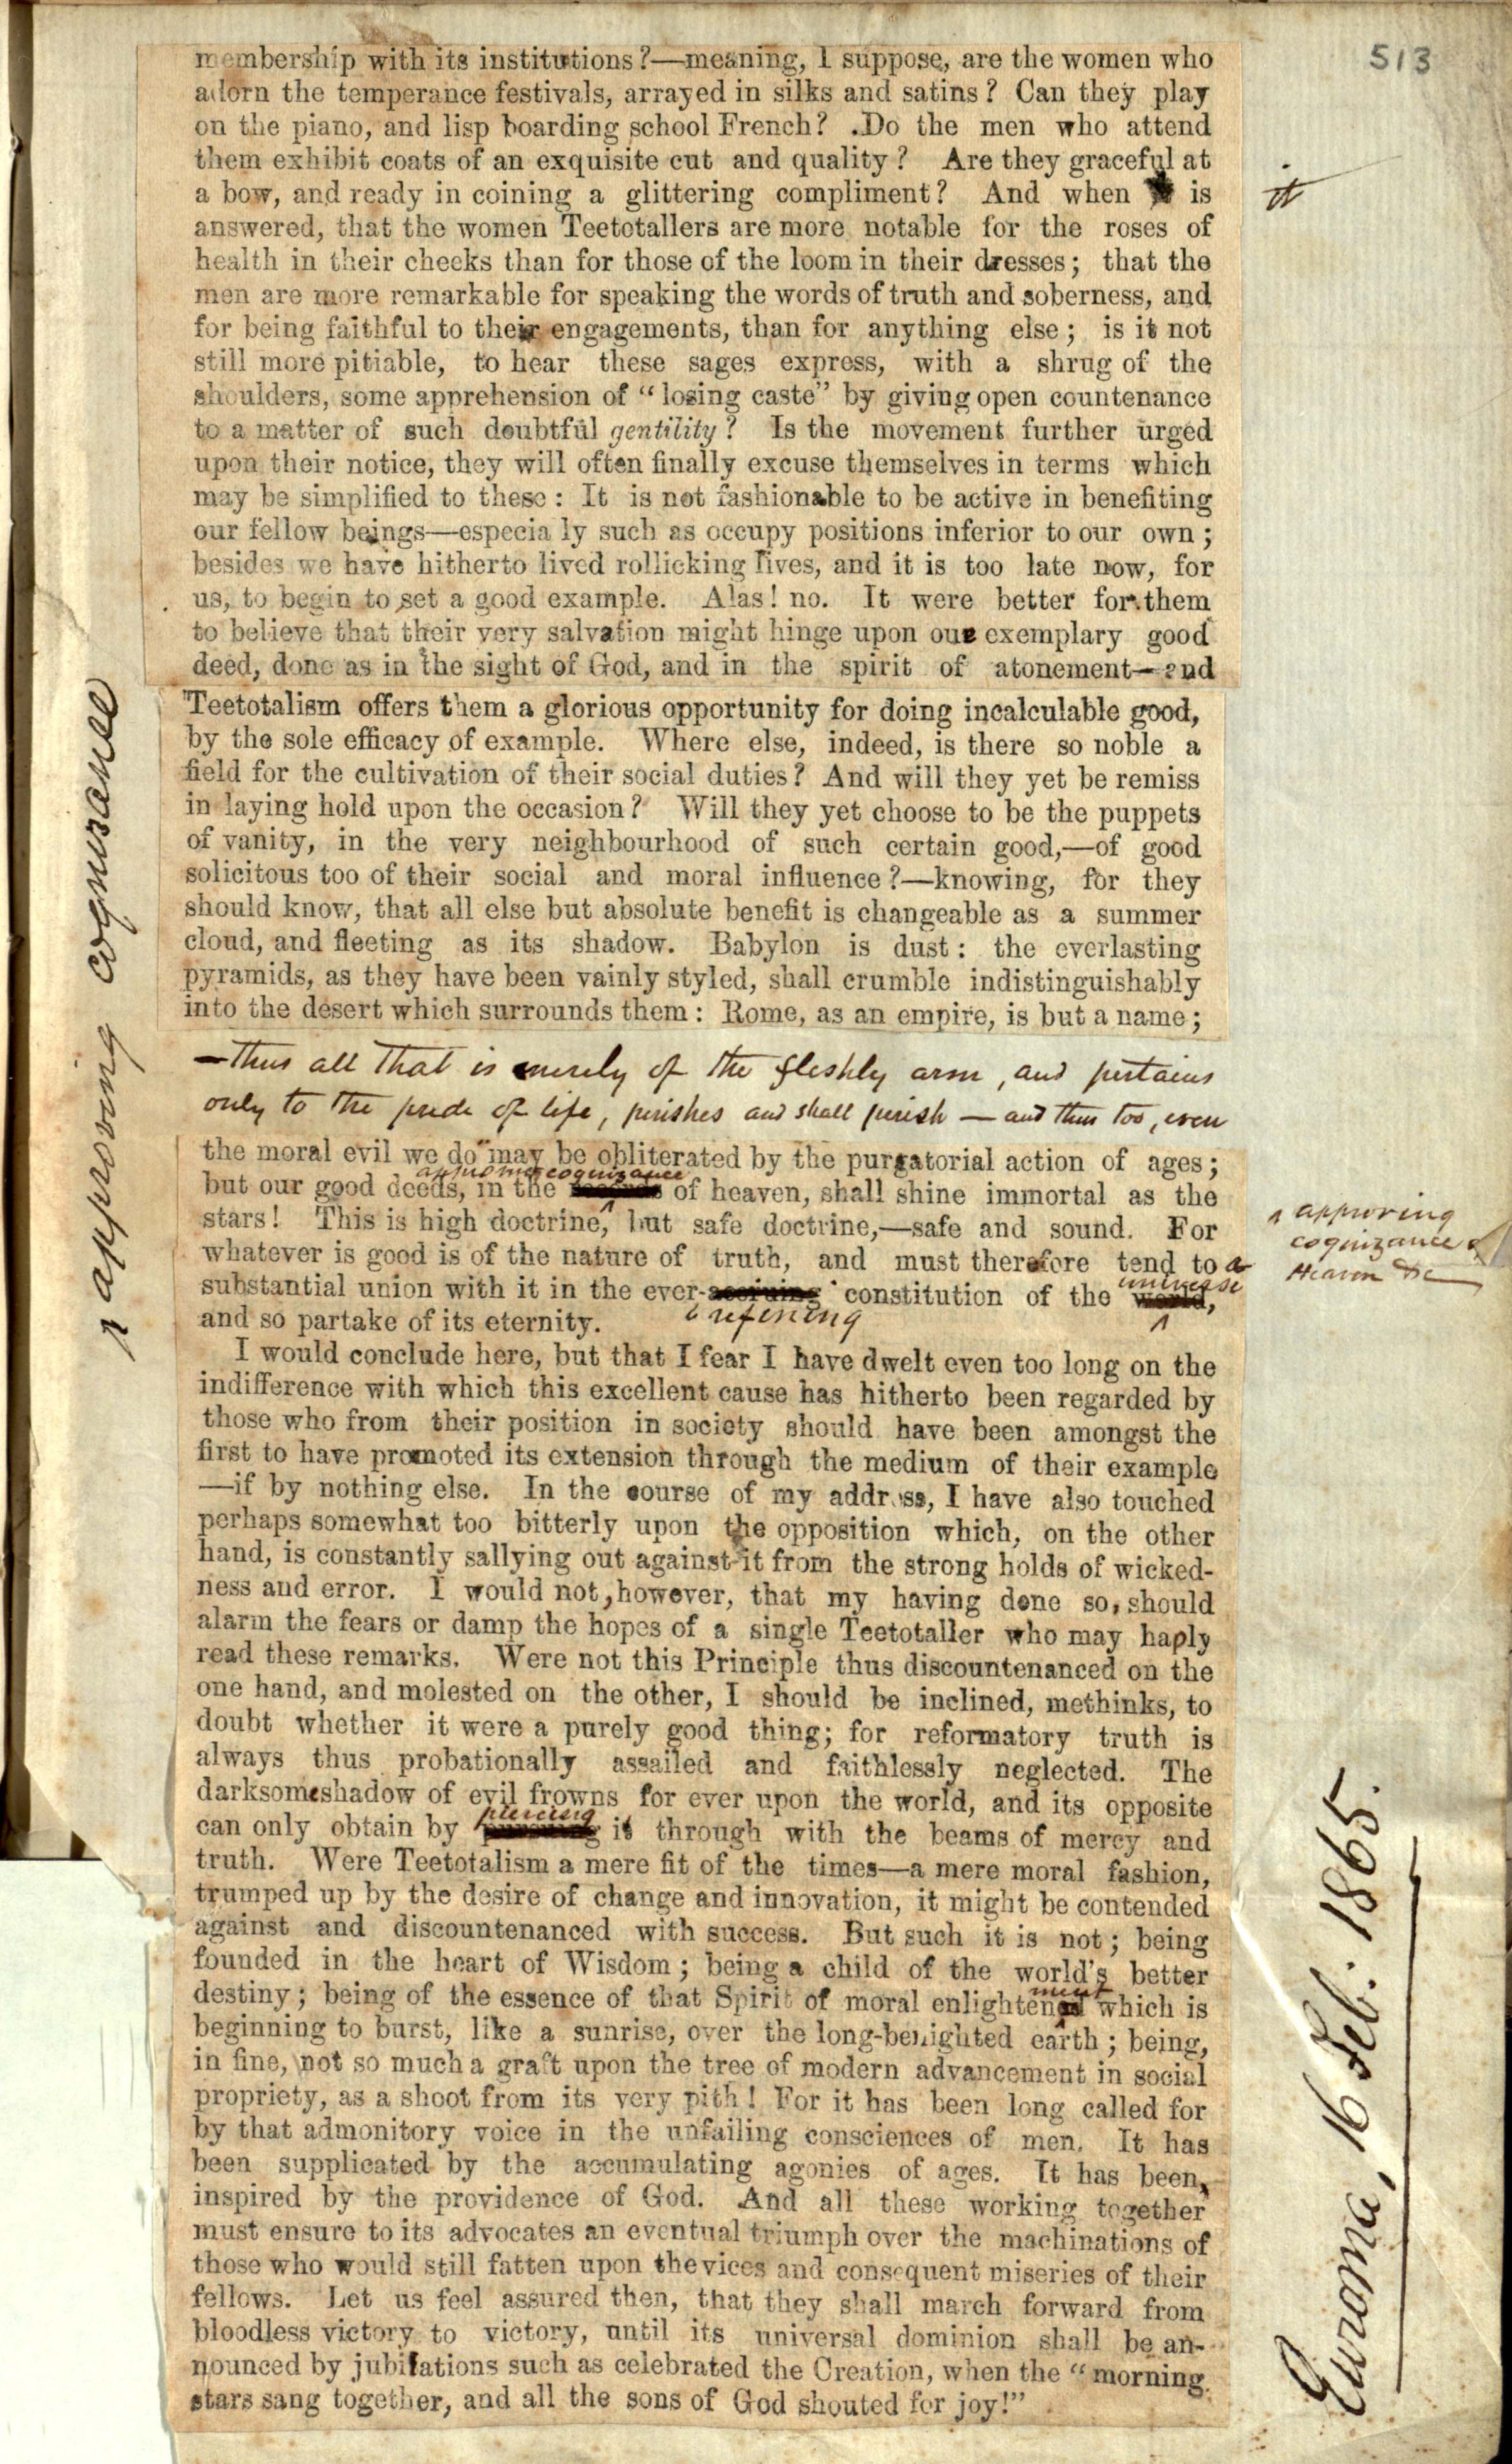 513
membership with its institutions?—meaning, I suppose, are the women who
adorn the temperance festivals, arrayed in silks and satins? Can they play
on the piano, and lisp boarding school French? .Do the men who attend
them exhibit coats of an exquisite cut and quality? Are they graceful at
a bow, and ready in coining a glittering compliment? And when is
it
answered, that the women Teetotallers are more notable for the roses of
health in their cheeks than for those of the loom in their dresses; that the
men are more remarkable for speaking the words of truth and soberness, and
for being faithful to their engagements, than for anything else; is it not
still more pitiable, to hear these sages express, with a shrug of the
shoulders, some apprehension of "losing caste" by giving open countenance
to a matter of such doubtful gentility? Is the movement further urged
upon their notice, they will often finally excuse themselves in terms which
may be simplified to these: It is not fashionable to be active in benefiting
our fellow beings—especia ly such as occupy positions inferior to our own;
besides we have hitherto lived rollicking lives, and it is too late now, for
us, to begin to set a good example. Alas! no. It were better for them
to believe that their very salvation might hinge upon our exemplary good
deed, done as in the sight of God, and in the spirit of atonement—and
Teetotalism offers them a glorious opportunity for doing incalculable good,
by the sole efficacy of example. Where else, indeed, is there so noble a
field for the cultivation of their social duties? And will they yet be remiss
in laying hold upon the occasion? Will they yet choose to be the puppets
of vanity, in the very neighbourhood of such certain good,—of good
solicitous too of their social and moral influence?—knowing, for they
should know, that all else but absolute benefit is changeable as a summer
cloud, and fleeting as its shadow. Babylon is dust: the everlasting
pyramids, as they have been vainly styled, shall crumble indistinguishably
into the desert which surrounds them: Rome, as an empire, is but a name;
—thus all that is merely of the fleshly arm, and pertains
only to the pride of life, perishes and shall perish — and thus too, even
the moral evil we do may be obliterated by the purgatorial action of ages;
approving cognizance
but our good deeds, in the of heaven, shall shine immortal as the
stars! This is high doctrine, but safe doctrine,—safe and sound. For
whatever is good is of the nature of truth, and must therefore tend to a
universe
substantial union with it in the ever-accruing constitution of the world,
refining
and so partake of its eternity.
approving
cognizance of
Heaven &c
approving cognisance
I would conclude here, but that I fear I have dwelt even too long on the
indifference with which this excellent cause has hitherto been regarded by
those who from their position in society should have been amongst the
first to have promoted its extension through the medium of their example
—if by nothing else. In the course of my address, I have also touched
perhaps somewhat too bitterly upon the opposition which, on the other
hand, is constantly sallying out against it from the strong holds of wicked-
ness and error. I would not, however, that my having done so, should
alarm the fears or damp the hopes of a single Teetotaller who may haply
read these remarks. Were not this Principle thus discountenanced on the
one hand, and molested on the other, I should be inclined, methinks, to
doubt whether it were a purely good thing; for reformatory truth is
always thus probationally assailed and faithlessly neglected. The
darksome shadow of evil frowns for ever upon the world, and its opposite
piercing
can only obtain by it through with the beams of mercy and
truth. Were Teetotalism a mere fit of the times—a mere moral fashion,
trumped up by the desire of change and innovation, it might be contended
against and discountenanced with success. But such it is not; being
founded in the heart of Wisdom; being a child of the world's better
ment
destiny; being of the essence of that Spirit of moral enlightened which is
beginning to burst, like a sunrise, over the long-benighted earth; being,
in fine, not so much a graft upon the tree of modern advancement in social
propriety, as a shoot from its very pith! For it has been long called for
by that admonitory voice in the unfailing consciences of men. It has
been supplicated by the accumulating agonies of ages. It has been,
inspired by the providence of God. And all these working together
must ensure to its advocates an eventual triumph over the machinations of
those who would still fatten upon the vices and consequent miseries of their
fellows. Let us feel assured then, that they shall march forward from
bloodless victory to victory, until its universal dominion shall be an-
nounced by jubilations such as celebrated the Creation, when the "morning
stars sang together, and all the sons of God shouted for joy!"
Euroma, 16 Feb: 1865.